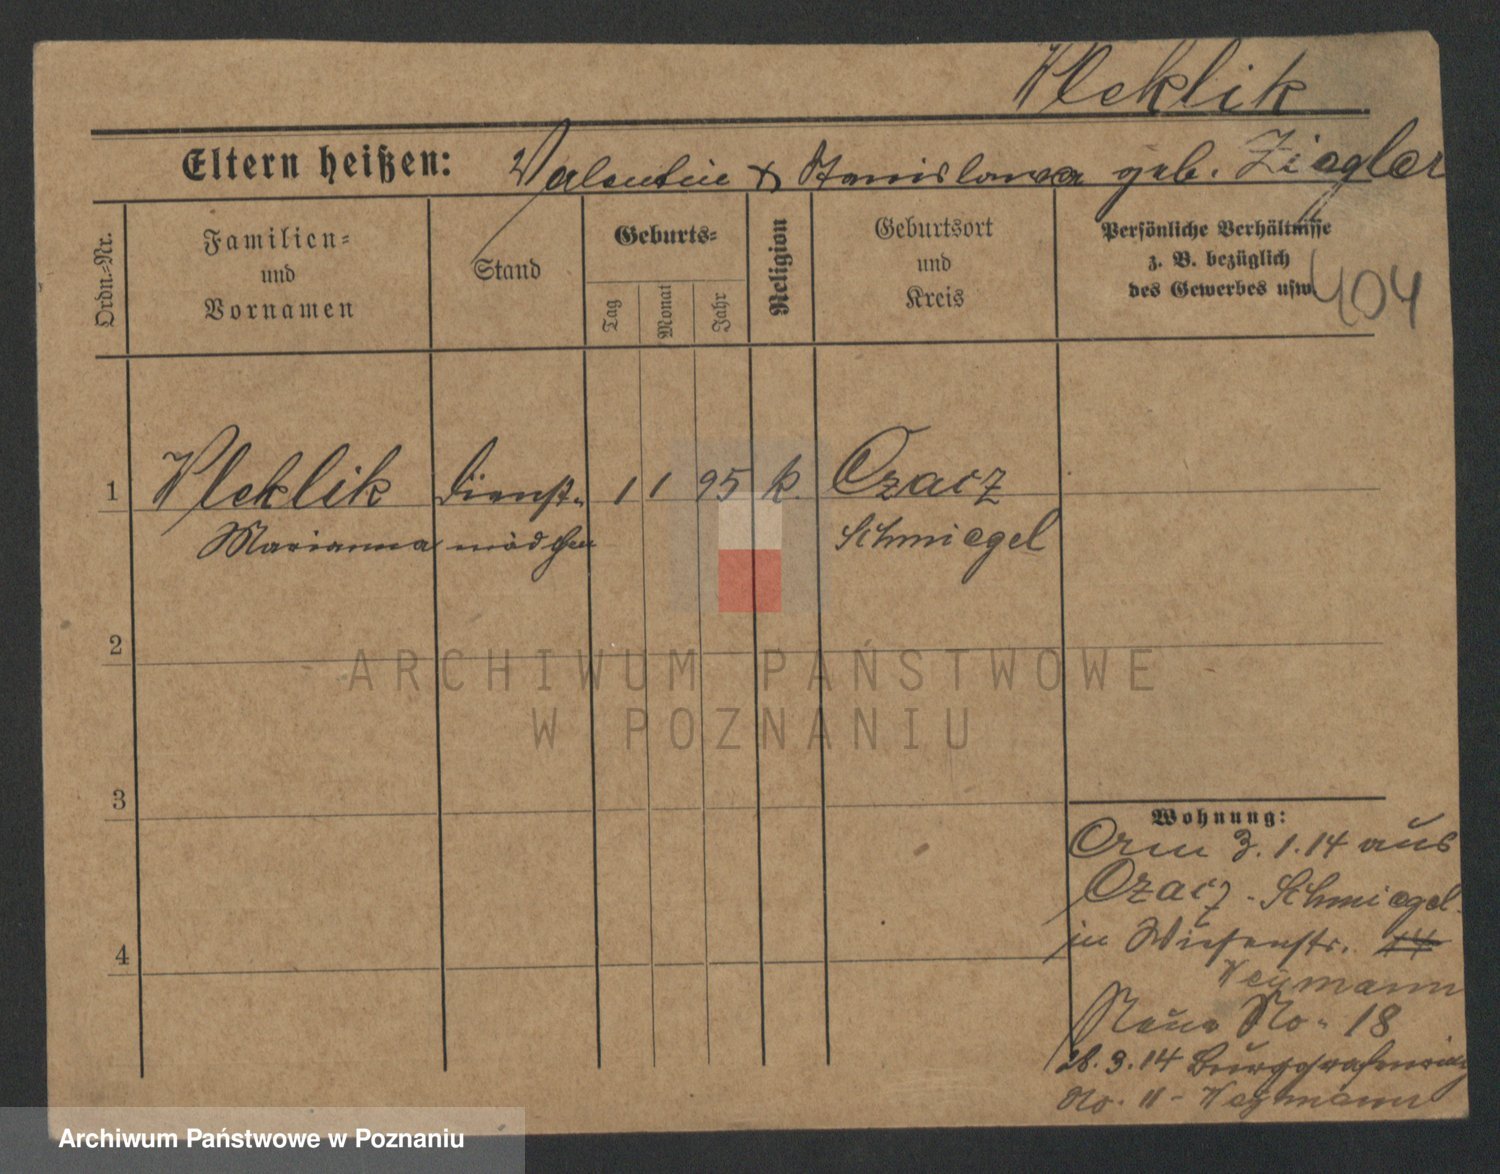 Wleklik
Eltern heißen: Valentin & Stanislawa geb. Ziegler
Ordn.=Nr.
Familien=
und
Vornamen
Stand
Geburts=
Tag
Monat
Jahr
Religion
Geburtsort
und
Kreis
Persönliche Verhältnisse
z. B. bezüglich
des Gewerbes usw.
404
1 Wleklik Dienst= 1 1 95 k. Czacz
Marianna mädchen Schmiegel
2
3
4
ARCHIWUM PAŃSTWOWE
W POZNANIU
Wohnung:
Am 3.1.14 aus
Czacz - Schmiegel
in Wiesenstr. 14
Weymann
Neue No. 18
28.3.14 Burggrafenring
No. 11 - Weymann
Archiwum Państwowe w Poznaniu